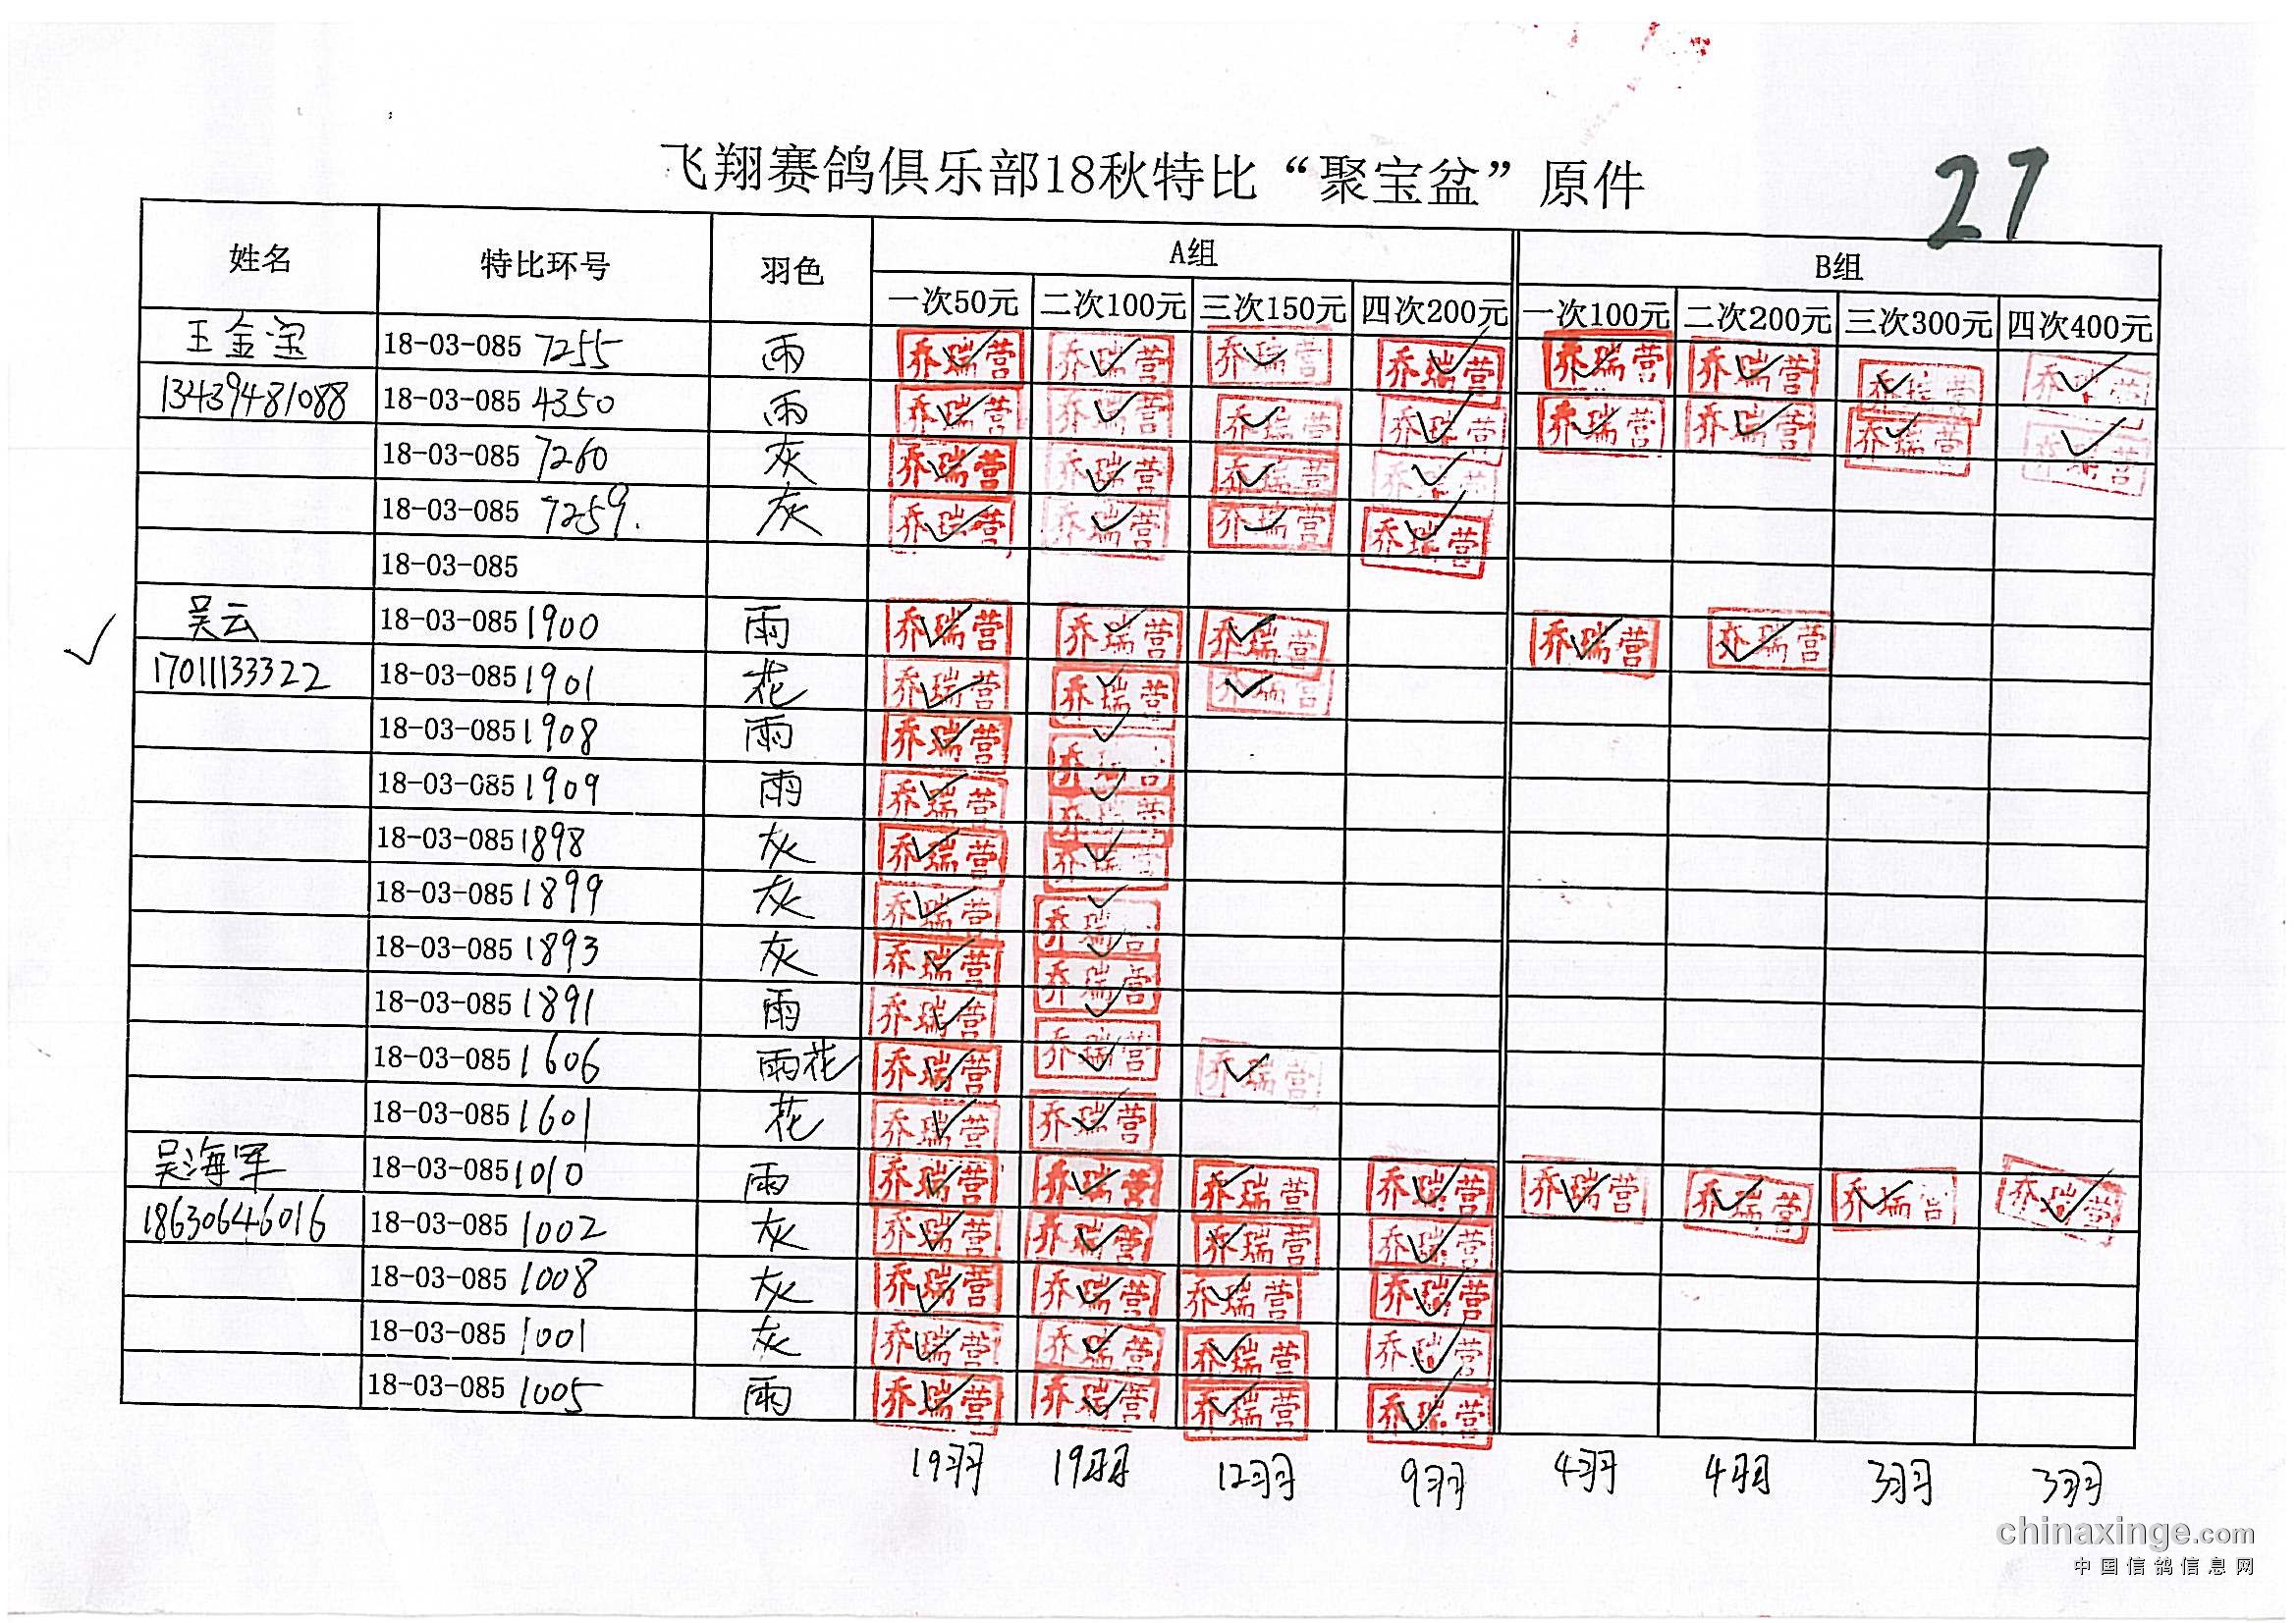 飞翔赛鸽俱乐部18秋特比“聚宝盆”原件
27
姓名 特比环号 羽色 A组 B组
一次50元 二次100元 三次150元 四次200元 一次100元 二次200元 三次300元 四次400元
王金宝 18-03-085 7255 雨 乔瑞营 乔瑞营 乔瑞营 乔瑞营 乔瑞营 乔瑞营 乔瑞营 乔瑞营
13439481088 18-03-085 4350 雨 乔瑞营 乔瑞营 乔瑞营 乔瑞营 乔瑞营 乔瑞营 乔瑞营 乔瑞营
18-03-085 7260 灰 乔瑞营 乔瑞营 乔瑞营 乔瑞营
18-03-085 7259. 灰 乔瑞营 乔瑞营 乔瑞营 乔瑞营
18-03-085
吴云 18-03-085 1900 雨 乔瑞营 乔瑞营 乔瑞营 乔瑞营 乔瑞营
17011133322 18-03-085 1901 花 乔瑞营 乔瑞营 乔瑞营
18-03-085 1908 雨 乔瑞营 乔瑞营
18-03-085 1909 雨 乔瑞营 乔瑞营
18-03-085 1898 灰 乔瑞营 乔瑞营
18-03-085 1899 灰 乔瑞营 乔瑞营
18-03-085 1893 灰 乔瑞营 乔瑞营
18-03-085 1891 雨 乔瑞营 乔瑞营
18-03-085 1606 雨花 乔瑞营 乔瑞营
18-03-085 1601 花 乔瑞营 乔瑞营
吴海军 18-03-085 1010 雨 乔瑞营 乔瑞营 乔瑞营 乔瑞营 乔瑞营 乔瑞营 乔瑞营 乔瑞营
18630646016 18-03-085 1002 灰 乔瑞营 乔瑞营 乔瑞营 乔瑞营
18-03-085 1008 灰 乔瑞营 乔瑞营 乔瑞营 乔瑞营
18-03-085 1001 灰 乔瑞营 乔瑞营 乔瑞营 乔瑞营
18-03-085 1005 雨 乔瑞营 乔瑞营 乔瑞营 乔瑞营
19羽 19羽 12羽 9羽 4羽 4羽 3羽 3羽
chinaxinge.com
中国信鸽信息网